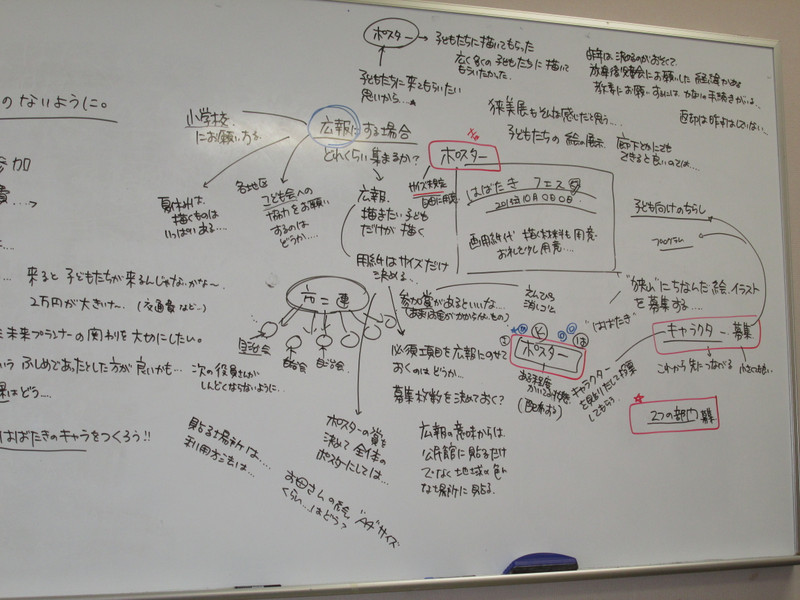 のないように。
参加
費…
… 来ると子どもたちが来るんじゃないかな〜
2万円が大きいナ〜 (交通費など…)
未来プランナーの関わりを大切にしたい。
ふしめであったとした方が良いかも…
はどう…
はばたきのキャラをつくろう!!
ポスター
子どもたちに描いてもらった
広く多くの子どもたちに描いて
もらいたかった
子どもたちに来てもらいたい
思いから…
昨年は決めるのがおそくて、
小学校
にお願いする
広報にする場合
どれくらい集まるか?
夏休みは、
描くものは
いっぱいある…
各地区
子ども会への
協力をお願い
するのは
どうか…
広報
描きたい子ども
だけが描く
用紙はサイズだけ
決める
狭美展もそんな感じだと思う…
子どもたちの絵の展示
廊下とかにでも
できると良いのでは…
返却は昨年はしていない
ポスター
サイズ未定
自由に用意
はばたきフェス
2014年10月〇日〇日
画用紙代 描く材料も用意
おれいも少し用意…
子ども向けのちらし
プログラム
"狭山"にちなんだ絵.イラスト
を募集する…
"はばたき"
キャラクター募集
これから先につながる
キャラクター
してもらう
2つの部門募集
参加賞があるといいな…
えんぴつ
消しゴム
ポスター
ある程度
(配布する)
必須項目を広報にのせて
おくのはどうか…
募集枚数を決めておく?
広報の意味からは
公民館に貼るだけ
でなく地域の色んな
な場所に貼る。
市ニ連
自治会
自治会
自治会
次の役員さんが
しんどくならないように…
ポスターの賞を
決めて全体の
ポスターにしては…
貼る場所は…
利用方法は…
お母さんの絵 "A4"サイズ
くらい…はどう?